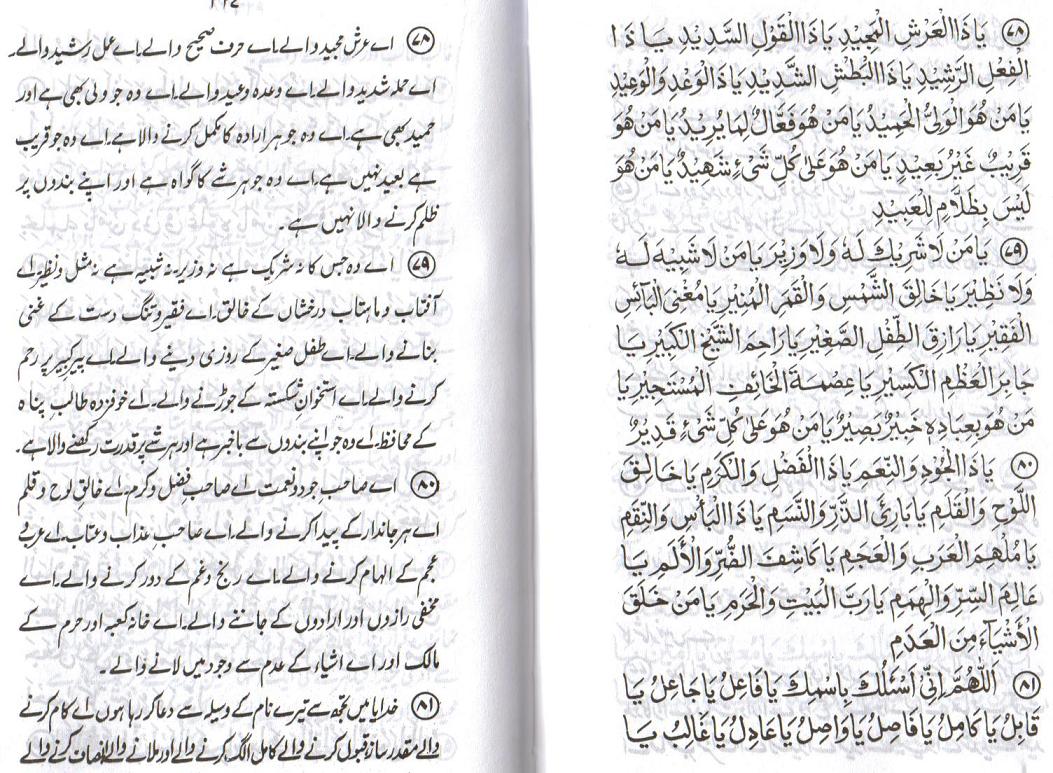 ۷۸ يَا ذَا الْعَرْشِ الْمَجِيدِ يَا ذَا الْقَوْلِ السَّدِيدِ يَا ذَا
الْفِعْلِ الرَّشِيدِ يَا ذَا الْبَطْشِ الشَّدِيدِ يَا ذَا الْوَعْدِ وَالْوَعِيدِ
يَا مَنْ هُوَ الْوَلِيُّ الْحَمِيدُ يَا مَنْ هُوَ فَعَّالٌ لِمَا يُرِيدُ يَا مَنْ هُوَ
قَرِيبٌ غَيْرُ بَعِيدٍ يَا مَنْ هُوَ عَلىٰ كُلِّ شَىْءٍ شَهِيدٌ يَا مَنْ هُوَ
لَيْسَ بِظَلَّامٍ لِلْعَبِيدِ
۷۹ يَا مَنْ لَا شَرِيكَ لَهُ وَلَا وَزِيرَ يَا مَنْ لَا شَبِيْهَ لَهُ
وَلَا نَظِيْرَ يَا خَالِقَ الشَّمْسِ وَالْقَمَرِ الْمُنِيْرِ يَا مُغْنِيَ الْبَآئِسِ
الْفَقِيْرِ يَا رَازِقَ الطِّفْلِ الصَّغِيْرِ يَا رَاحِمَ الشَّيْخِ الْكَبِيْرِ يَا
جَابِرَ الْعَظْمِ الْكَسِيْرِ يَا عِصْمَةَ الْخَائِفِ الْمُسْتَجِيْرِ يَا
مَنْ هُوَ بِعِبَادِهِ خَبِيْرٌ بَصِيْرٌ يَا مَنْ هُوَ عَلىٰ كُلِّ شَىْءٍ قَدِيْرٌ
۸۰ يَا ذَا الْجُوْدِ وَالنِّعَمِ يَا ذَا الْفَضْلِ وَالْكَرَمِ يَا خَالِقَ
اللَّوْحِ وَالْقَلَمِ يَا بَارِئَ الذَّرِّ وَالنَّسَمِ يَا ذَا الْبَأْسِ وَالنِّقَمِ
يَا مُلْهِمَ الْعَرَبِ وَالْعَجَمِ يَا كَاشِفَ الضُّرِّ وَالْأَلَمِ يَا
عَالِمَ السِّرِّ وَالْهِمَمِ يَا رَبَّ الْبَيْتِ وَالْحَرَمِ يَا مَنْ خَلَقَ
الْأَشْيَآءَ مِنَ الْعَدَمِ
۸۱ اَللّٰهُمَّ اِنِّيْ اَسْئَلُكَ بِاسْمِكَ يَا فَاعِلُ يَا جَاعِلُ يَا
قَابِلُ يَا كَامِلُ يَا فَاصِلُ يَا وَاصِلُ يَا عَادِلُ يَا غَالِبُ يَا
۷۸ اے عرش مجید والے۔ اے حرف صحیح والے۔ اے عمل رشید والے۔
اے حملہ شدید والے۔ اے وعدہ وعید والے۔ اے وہ جو ولی بھی ہے اور
حمید بھی ہے۔ اے وہ جو ہر ارادہ کا مکمل کرنے والا ہے۔ اے وہ جو قریب
ہے بعید نہیں ہے۔ اے وہ جو ہر شے کا گواہ ہے اور اپنے بندوں پر
ظلم کرنے والا نہیں ہے۔
۷۹ اے وہ جس کا نہ شریک ہے نہ وزیر۔ نہ شبیہ ہے نہ مثل ونظیر۔ اے
آفتاب و ماہتاب درخشاں کے خالق۔ اے فقیر و تنگ دست کے غنی
بنانے والے۔ اے طفل صغیر کے روزی دینے والے۔ اے پیر کبیر پر رحم
کرنے والے۔ اے استخوان شکستہ کے جوڑنے والے۔ اے خوفزدہ طالب پناہ
کے محافظ۔ اے وہ جو اپنے بندوں سے باخبر ہے اور ہر شے پر قدرت رکھنے والا ہے۔
۸۰ اے صاحب جود و نعمت اے صاحب فضل و کرم۔ اے خالق لوح و قلم
اے ہر جاندار کے پیدا کرنے والے۔ اے صاحب عذاب و عتاب۔ اے عرب و
عجم کے الہام کرنے والے۔ اے رنج و غم کے دور کرنے والے۔ اے
مخفی رازوں اور ارادوں کے جاننے والے۔ اے خانہ کعبہ اور حرم کے
مالک اور اے اشیاء کے عدم سے وجود میں لانے والے۔
۸۱ خدایا میں تجھ سے تیرے نام کے وسیلہ سے دعا کر رہا ہوں اے کام کرنے
والے مقدر ساز۔ قبول کرنے والے کامل الگ کرنے والے اور ملانے والے انصاف کرنے والے